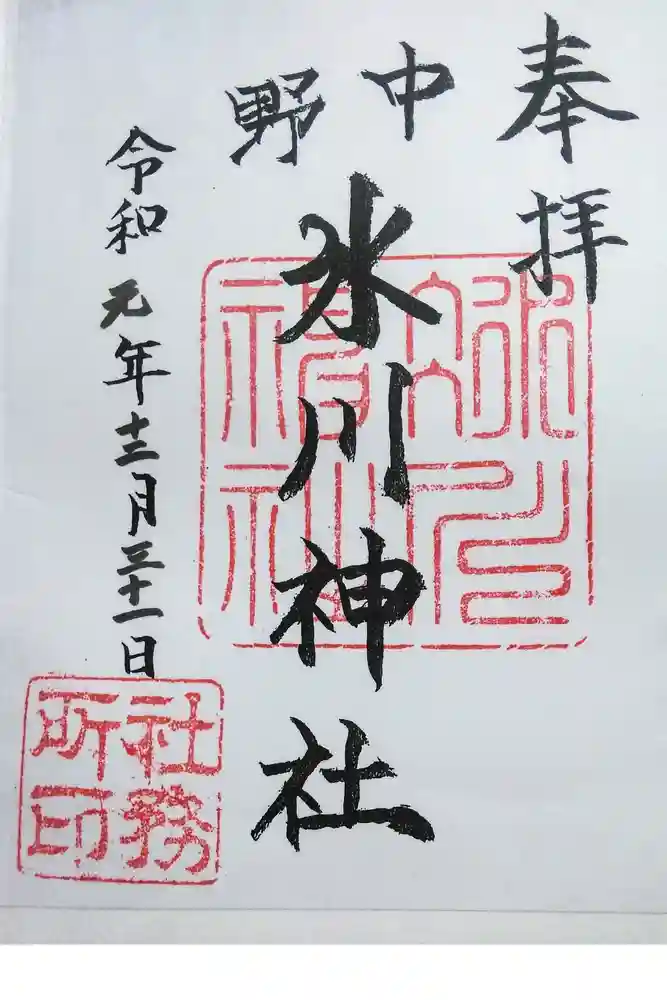 奉拝
中野
氷川神社
令和元年十二月三十一日
社務所印